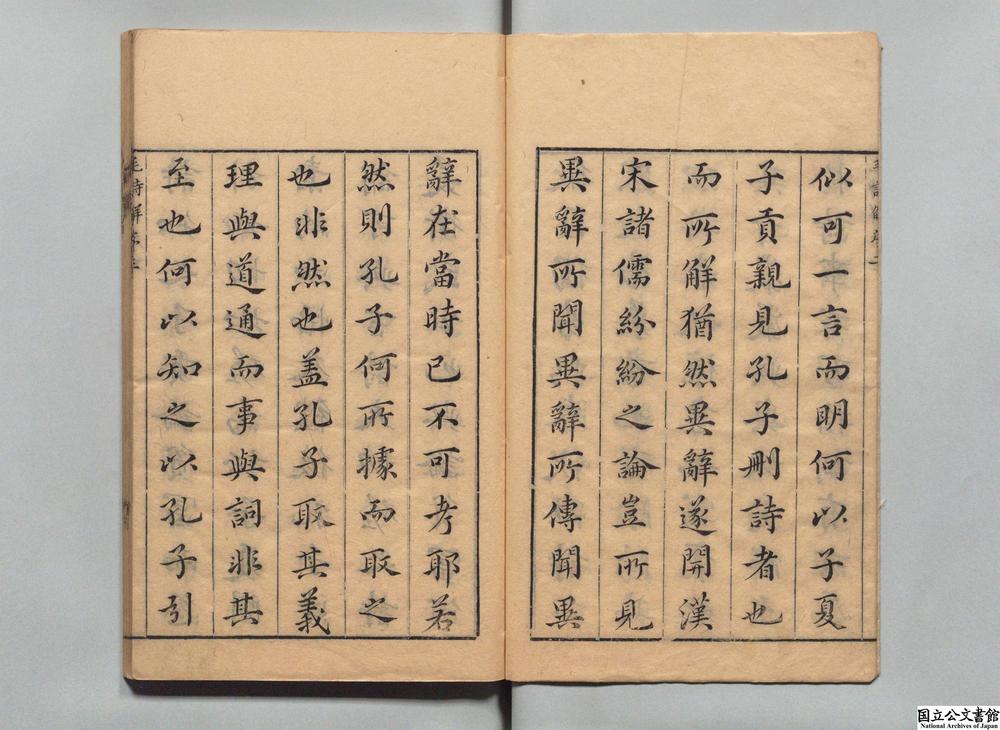 似可一言而明何以子夏
子貢親見孔子刪詩者也
而所解猶然異辭遂開漢
宋諸儒紛紛之論豈所見
異辭所聞異辭所傳聞異
辭在當時已不可考耶若
然則孔子何所據而取之
也非然也盖孔子取其義
理與道通而事與詞非其
至也何以知之以孔子引
国立公文書館
National Archives of Japan